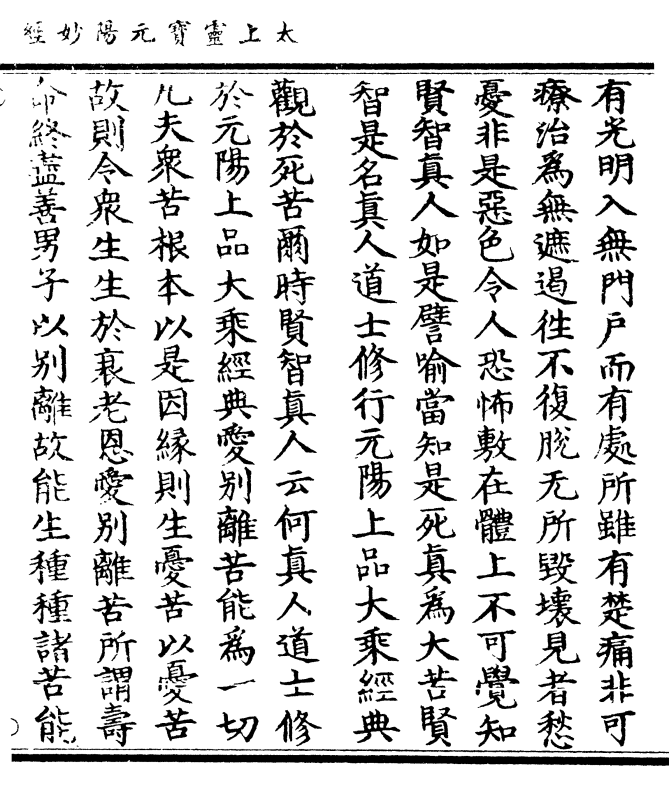 太上靈寶元陽妙經
有光明入無門戶而有處所雖有楚痛非可
療治為無遮遏徃不復脫无所毀壞見者愁
憂非是惡色令人恐怖敷在體上不可覺知
賢智真人如是譬喻當知是死真為大苦賢
智是名真人道士修行元陽上品大乘經典
觀於死苦爾時賢智真人云何真人道士修
於元陽上品大乘經典愛別離苦能為一切
凡夫衆苦根本以是因緣則生憂苦以憂苦
故則令衆生生於衰老恩愛別離苦所謂壽
命終盡善男子以別離故能生種種諸苦能